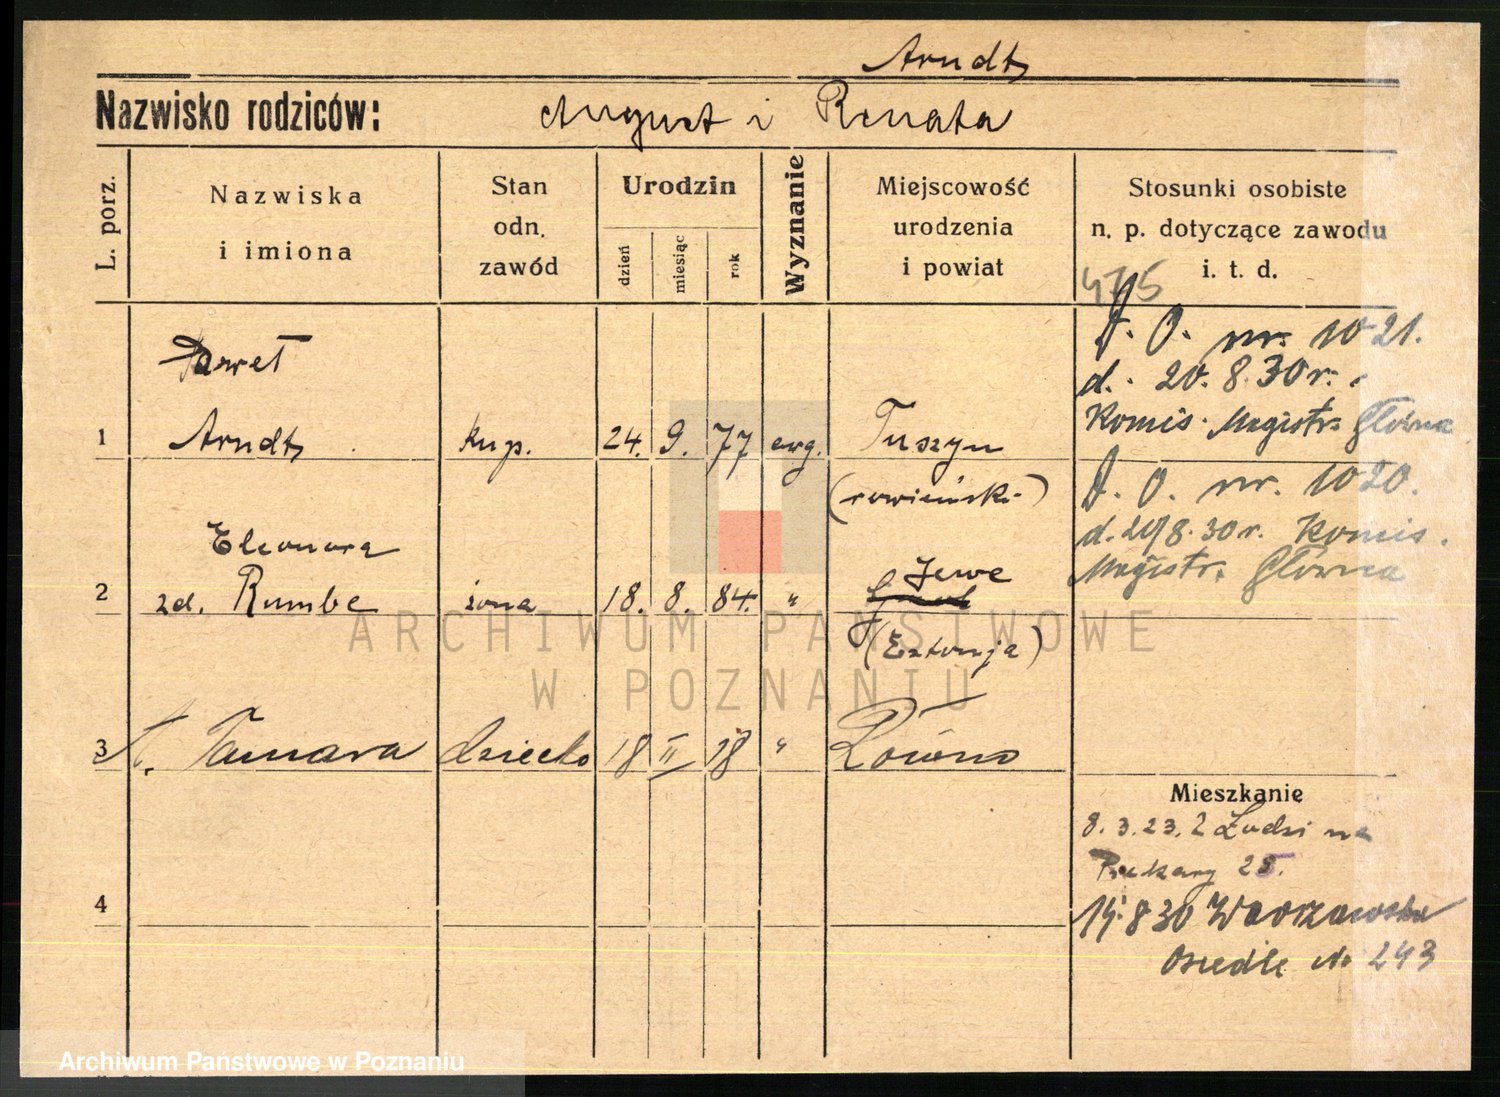 Arndt
Nazwisko rodziców: August i Renata
L. porz.
Nazwiska
i imiona
Stan
odn.
zawód
Urodzin
dzień
miesiąc
rok
Wyznanie
Miejscowość
urodzenia
i powiat
Stosunki osobiste
n. p. dotyczące zawodu
i. t. d.
Paweł
1 Arndt kup. 24. 9. 77 ewg. Tuszyn
(rowieński)
D. O. nr. 1021.
d. 20. 8. 30 r.
Komis. Magistr. Główna
Eleonora
2 zd. Rumbe żona 18. 8. 84. " Jewe
(Estonja)
D. O. nr. 1020.
d. 20/8. 30 r. Komis.
Magistr. Główna
3 Tamara dziecko 18 II 28 " Równo
4
Mieszkanie
8. 3. 23. z Łodzi na
Piekary 25.
15 8 30 Warszawska
Osiedle No 243
ARCHIWUM PAŃSTWOWE
W POZNANIU
Archiwum Państwowe w Poznaniu